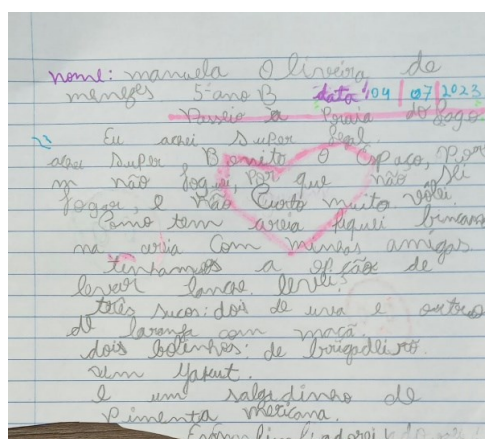 nome: manuela Olinveira de
menezes 5º ano B data: 04/07/2023
Passeio à Praia do fogo
Eu achei super legal.
achei super, Bonito o Espaço, Por
não joguei, Por que não sei
jogar, e não Curto muito vôlei.
Como tem areia fiquei brincan
na areia Com minhas amigas
tenhamos a opção de
levar lanche. levei:
três sucos: dois de uva e outro
de laranja com maçã.
dois bolinhos: de brigadeiro.
um yakut.
e um salgadinho de
Pimenta mexicana.
adorei